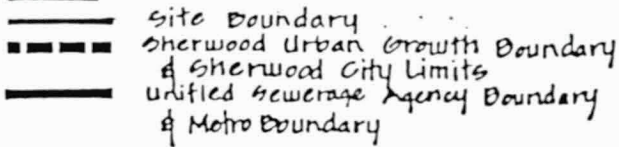 Site Boundary
Sherwood Urban Growth Boundary
& Sherwood City Limits
Unified Sewerage Agency Boundary
& Metro Boundary